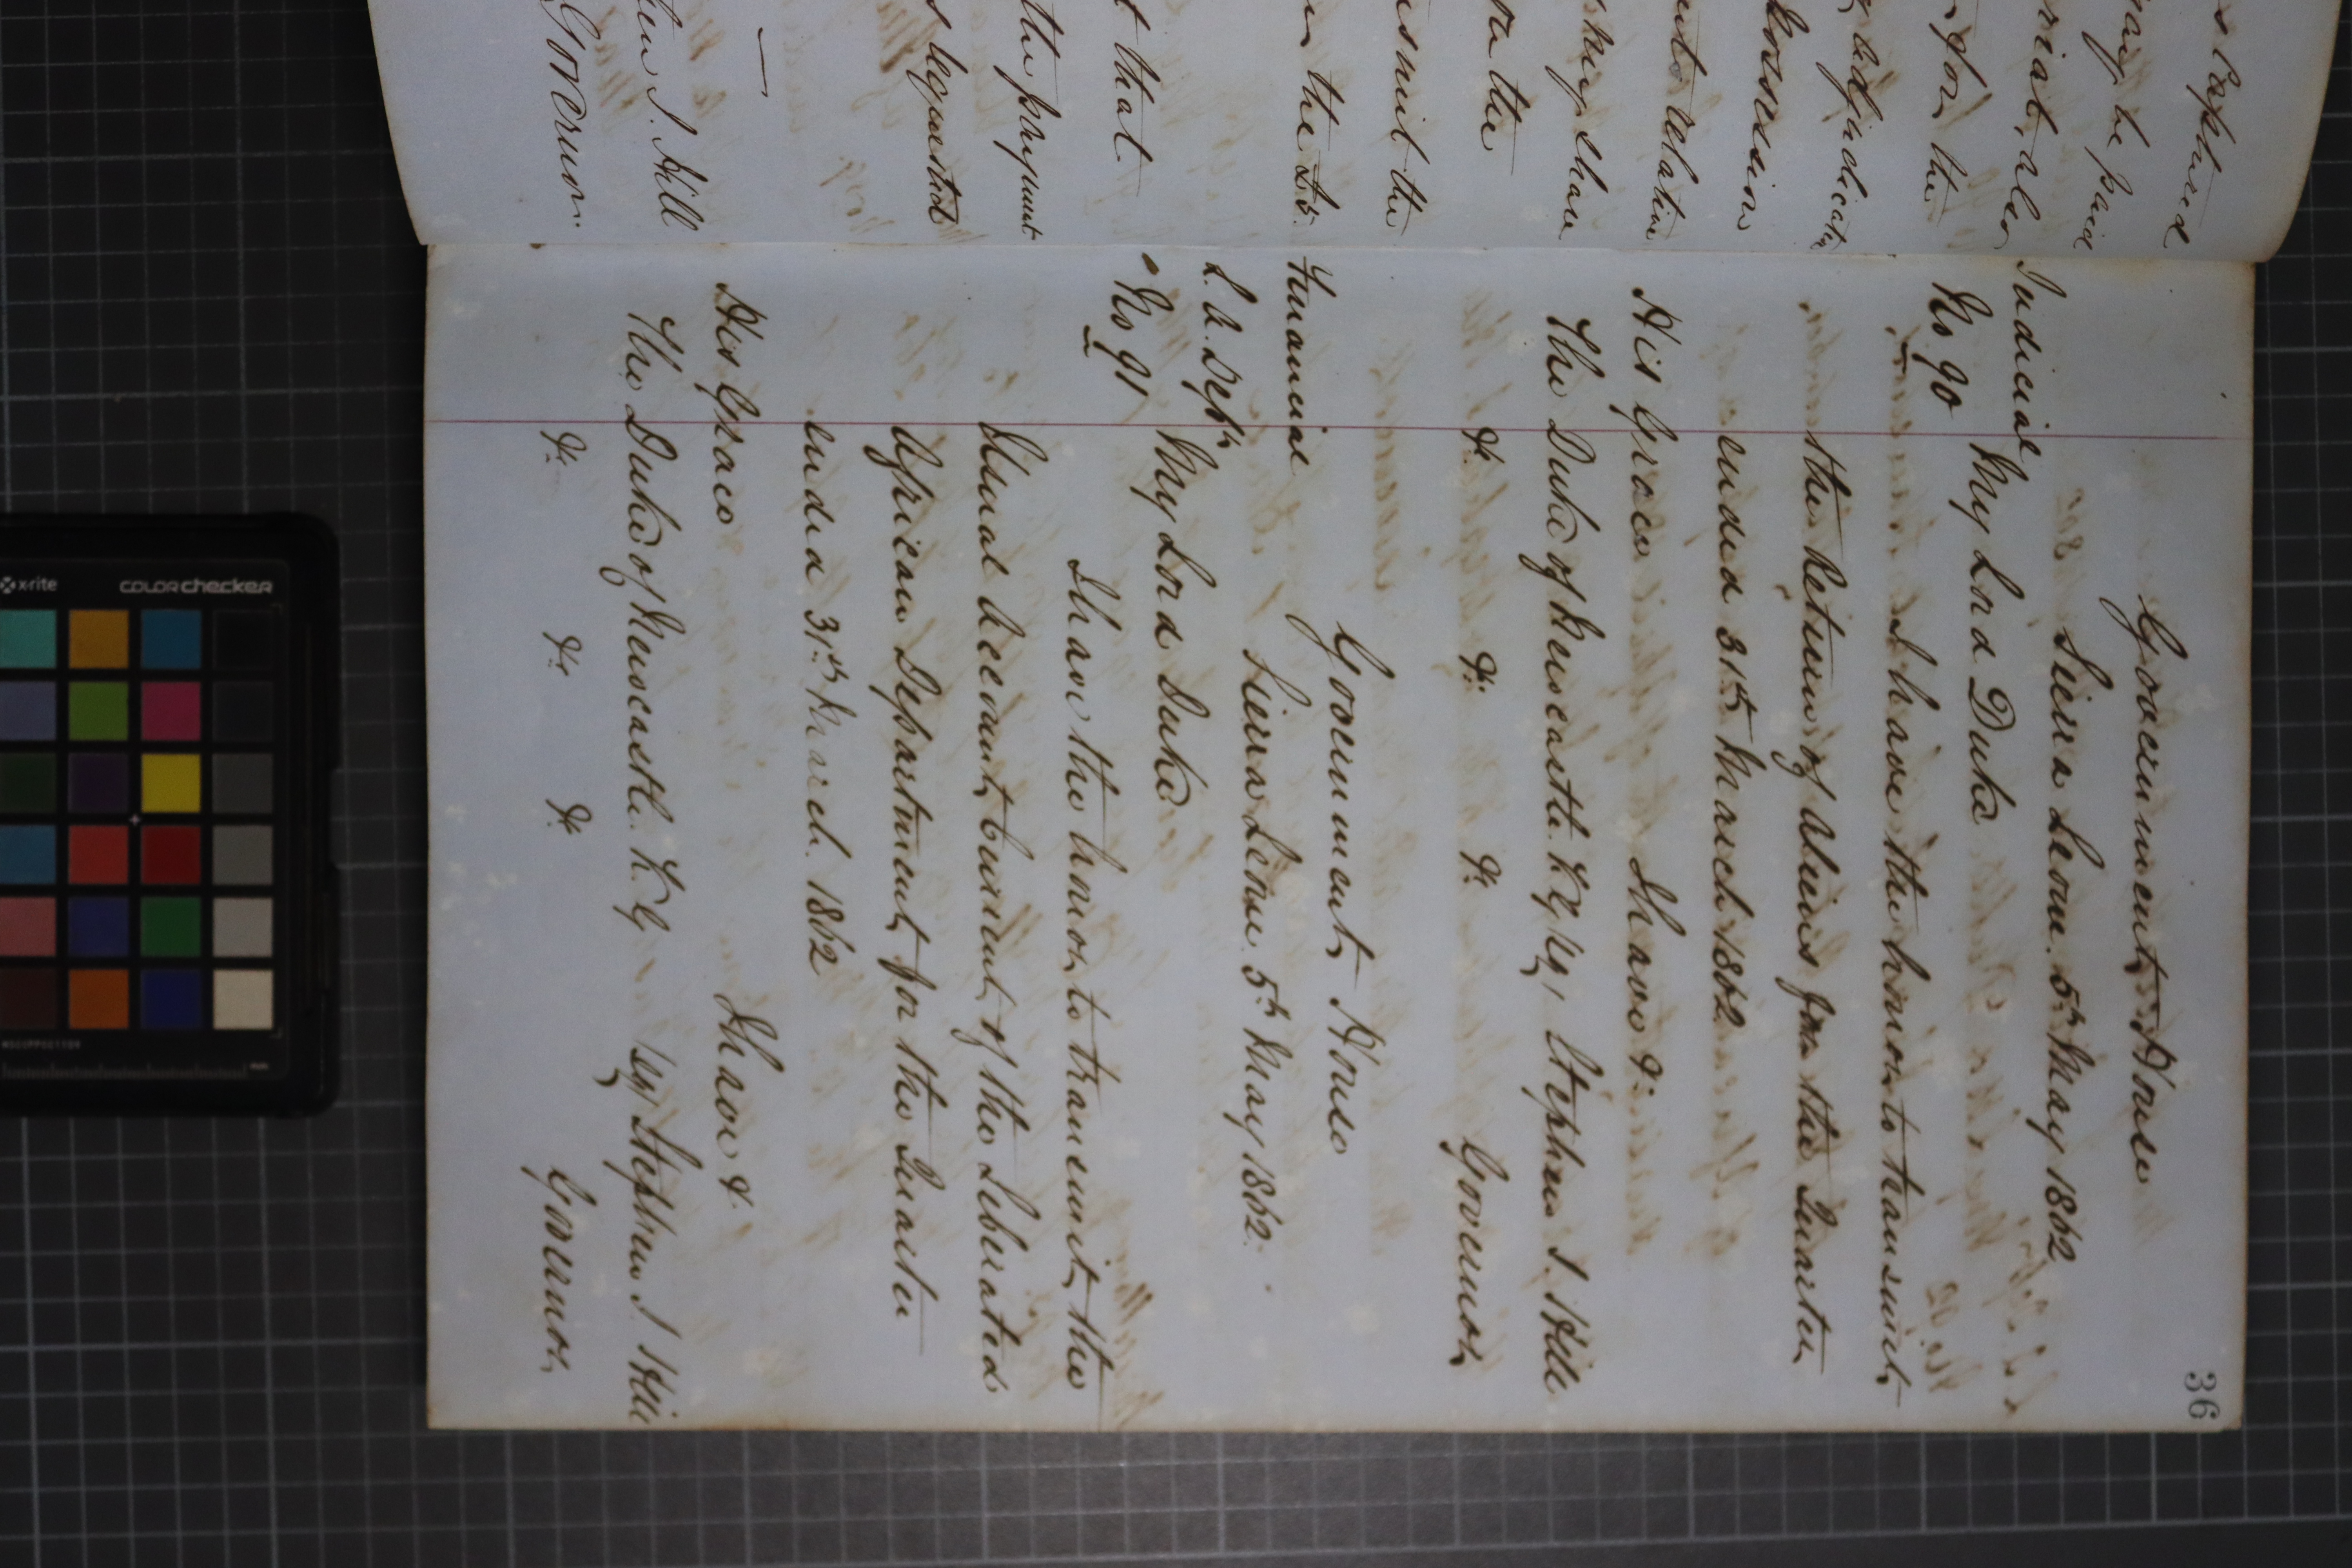 s Captured
may be paid
rial, also
for the
adjudicatn
possession
relation
the
smit the
in the Lt.
t that
the payment
s requested
hen J. Hill
Governor.
36
Government House
Sierra Leone. 5th May 1862
Judicial
No 90
My Lord Duke
I have the honor to transmit
the Return of Aliens for the Quarter
ended 31st March 1862
His Grace
I have &c
The Duke of Newcastle. K.G
Stephen J. Hill
&c &c &c
Governor
Government House
Sierra Leone. 5th May 1862.
Financial
L. A. Dept
No 91
My Lord Duke
I have the honor to transmit the
Usual Account Current of the Liberated
African Department for the Quarter
ended 31st March. 1862
His Grace
I have &c
The Duke of Newcastle. K.G
Sg/ Stephen J Hill
&c &c &c
Governor.
x-rite
colorchecker